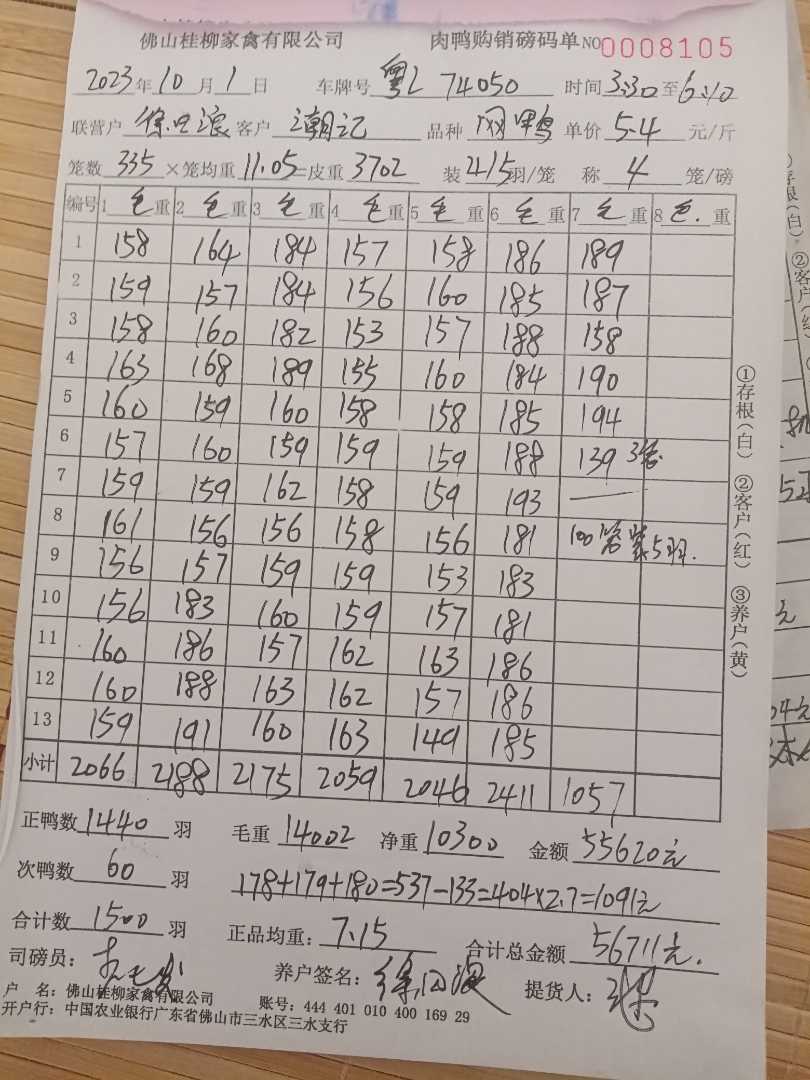 佛山桂柳家禽有限公司 肉鸭购销磅码单 NO 0008105
2023年10月1日 车牌号 粤L 74050 时间3:30至6:10
联营户 客户 潮记 品种 单价 5.4 元/斤
笼数 335 ×笼均重 11.05=皮重 3702 装 415羽/笼 称 4 笼/磅
编号 1毛重 2毛重 3毛重 4毛重 5毛重 6毛重 7毛重 8毛.重
1 158 164 184 157 158 186 189
2 159 157 184 156 160 185 187
3 158 160 182 153 157 188 158
4 163 168 189 155 160 184 190
5 160 159 160 158 158 185 194
6 157 160 159 159 159 188 139 3笼
7 159 159 162 158 159 193 —
8 161 156 156 158 156 181 100笼装5羽.
9 156 157 159 159 153 183
10 156 183 160 159 157 181
11 160 186 157 162 163 186
12 160 188 163 162 157 186
13 159 191 160 163 149 185
小计 2066 2188 2175 2059 2046 2411 1057
正鸭数 1440 羽 毛重 14002 净重 10300 金额 55620元
次鸭数 60 羽 178+179+180=537-133=404×2.7=1091元
合计数 1500 羽 正品均重: 7.15 合计总金额 56711元.
司磅员: 养户签名: 提货人:
户 名: 佛山桂柳家禽有限公司 账号: 444 401 010 400 169 29
开户行: 中国农业银行广东省佛山市三水区三水支行
①存根(白) ②客户(红) ③养户(黄)